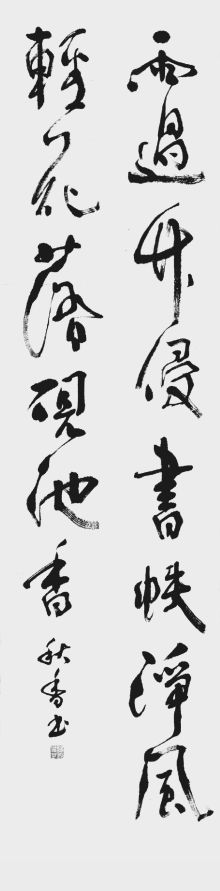 雨過竹侵書帙淨風
輕花落硯池香
秋香书